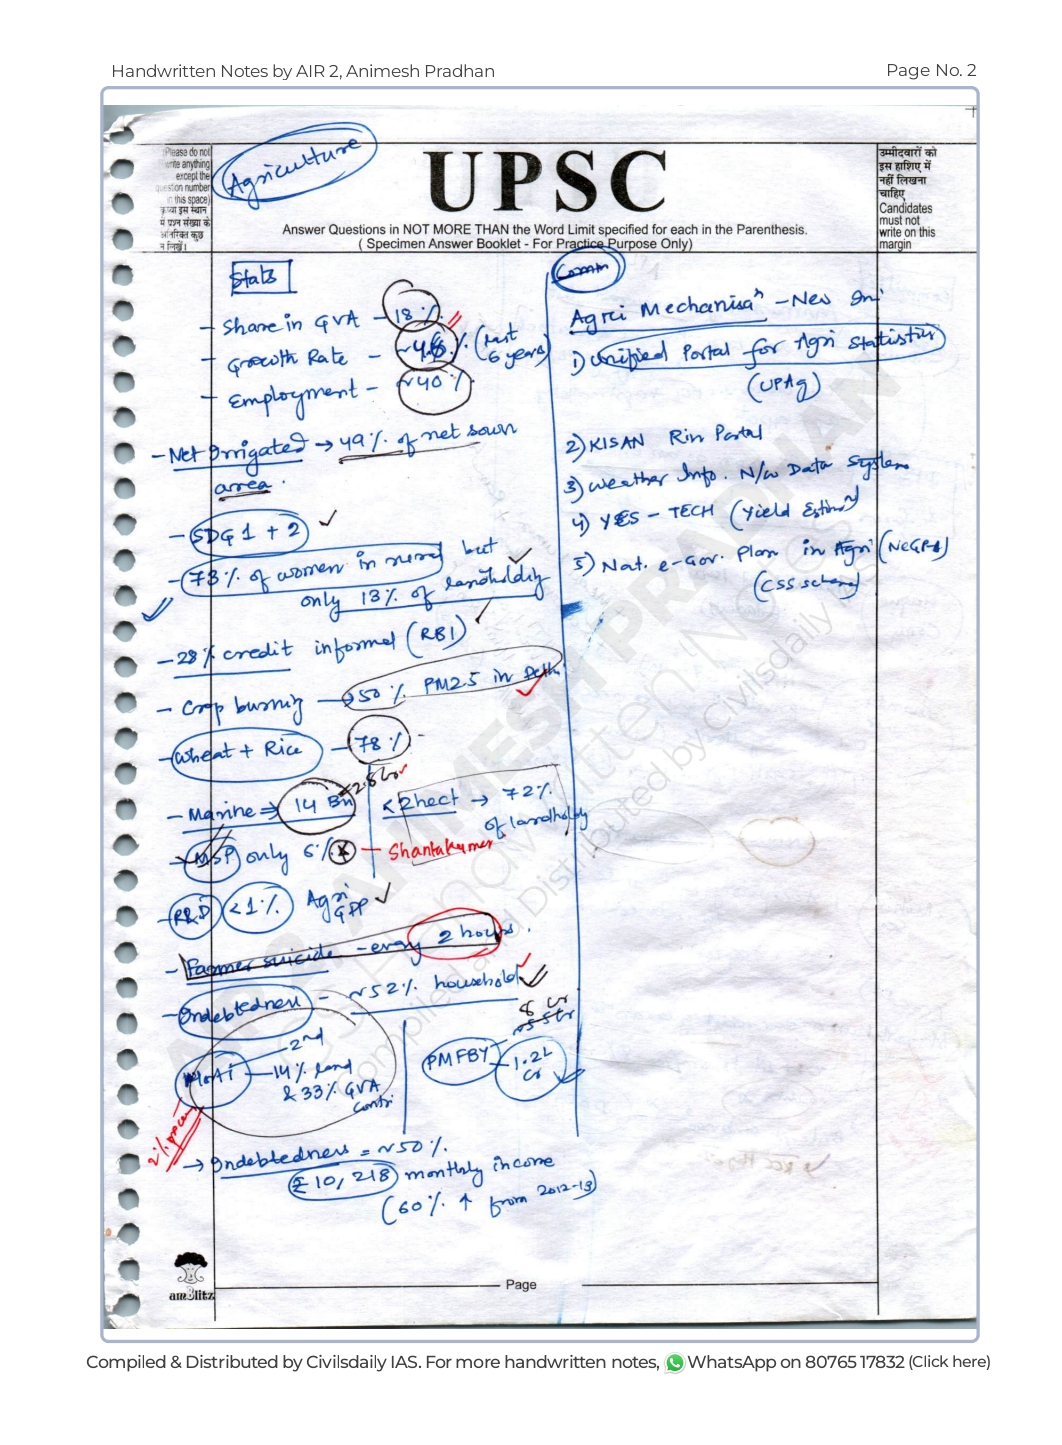 Handwritten Notes by AIR 2, Animesh Pradhan
Page No. 2
Please do not
write anything
except the
question number
in this space)
Agriculture
UPSC
Answer Questions in NOT MORE THAN the Word Limit specified for each in the Parenthesis.
( Specimen Answer Booklet - For Practice Purpose Only)
उम्मीदवारों को
इस हाशिए में
नहीं लिखना
चाहिए
Candidates
must not
write on this
margin
Stats
- Share in GVA - 18%
- Growth Rate - ~4.6% (last 6 years)
- Employment - ~40%
- Net Irrigated → 49% of net sown
area.
- SDG 1 + 2
- 73% of women in rural but
only 13% of landholding
- 28% credit informal (RBI)
- Crop burning → 50% PM2.5 in Delhi
- Wheat + Rice - 78%
- Marine ⇒ 14 Bn
2.8 Cr
<2hect → 72%
of landholdg
- MSP only 6% - Shantakumar
- R&D <1% Agri GDP
- Farmer suicide - every 2 hours.
- Indebtedness - ~52% household
2nd
- 14% land
& 33% GVA
contri
PMFBY - 8 Cr
- 1.2L Cr
→ Indebtedness = ~50%.
₹10,218 monthly income
(60% ↑ from 2012-13)
Comm
Agri Mechanisaⁿ - New Ini
1) Unified Portal for Agri Statistics
(UPAg)
2) KISAN Rin Portal
3) Weather Info. N/w Data System
4) YES - TECH (Yield Estimⁿ)
5) Nat. e-Gov. Plan in Agri (NeGP-A)
(CSS scheme)
Page
Compiled & Distributed by Civilsdaily IAS. For more handwritten notes, WhatsApp on 80765 17832 (Click here)